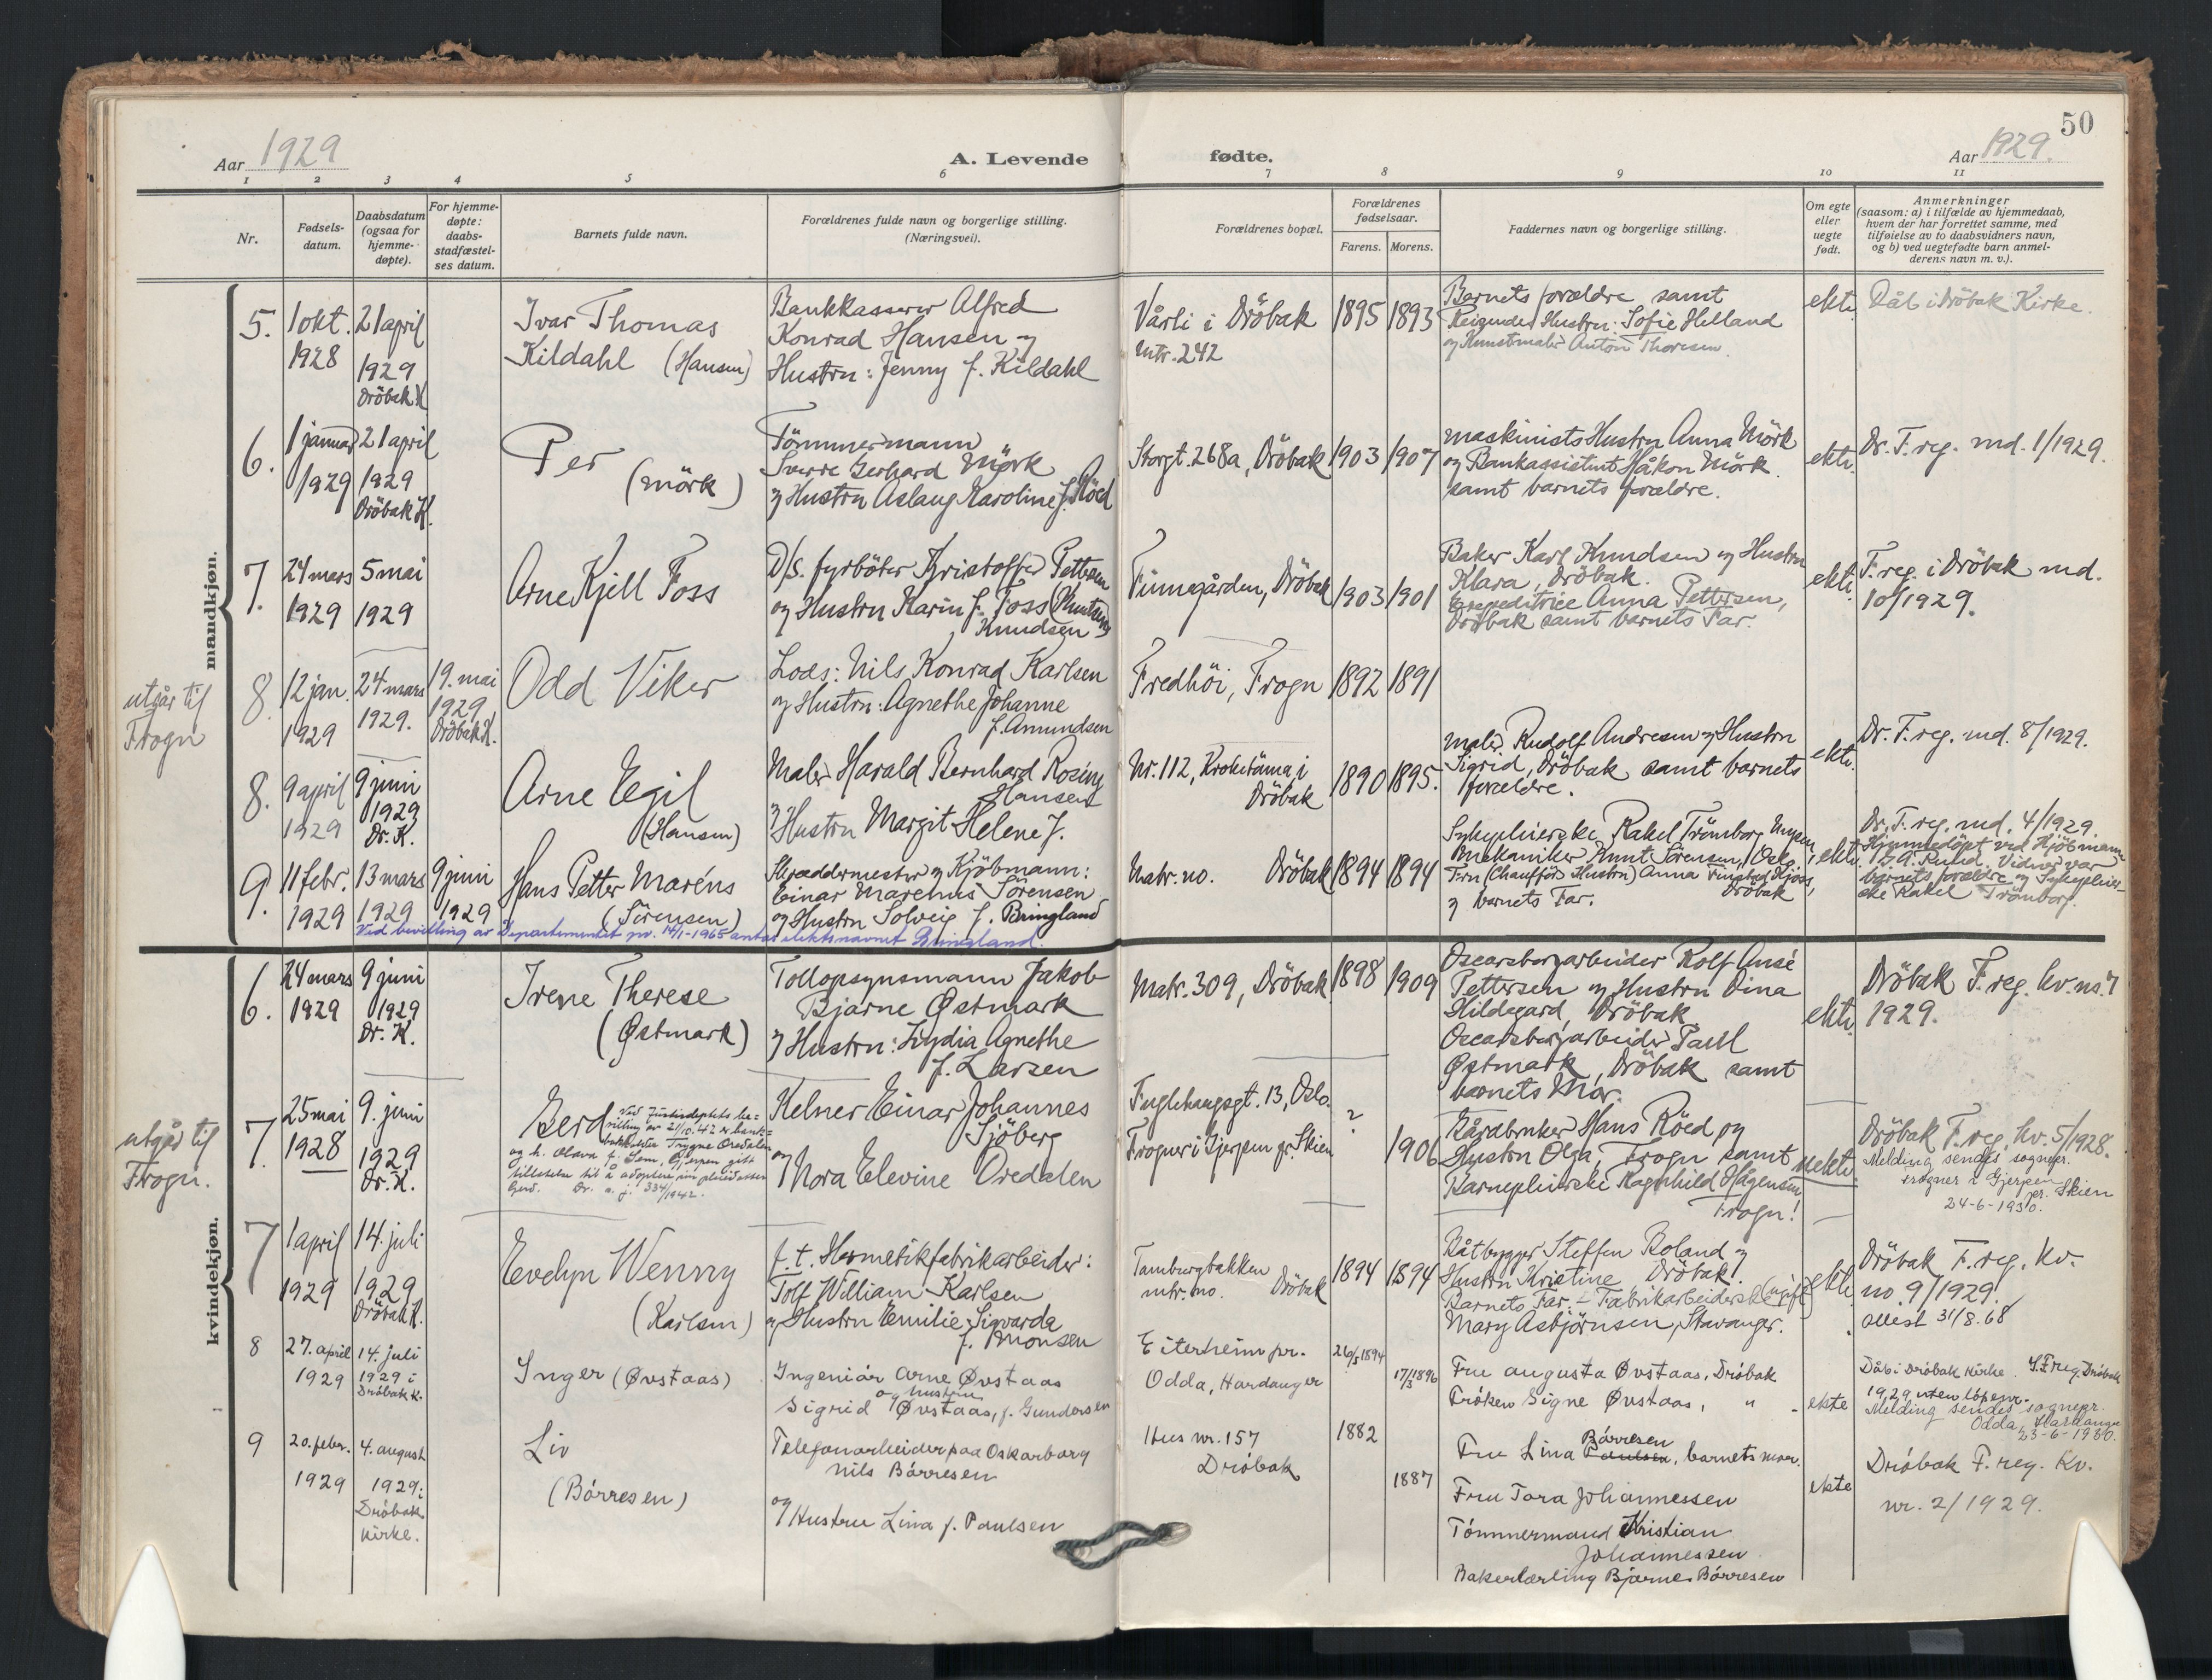 50
Aar 1929
A. Levende fødte.
Aar 1929.
1 2 3 4 5 6 7 8 9 10 11
Nr.
Fødsels-
datum.
Daabsdatum
(ogsaa for
hjemme-
døpte).
For hjemme-
døpte:
daabs-
stadfæstel-
ses datum.
Barnets fulde navn.
Forældrenes fulde navn og borgerlige stilling.
(Næringsvei).
Forældrenes bopæl.
Forældrenes
fødselsaar.
Farens. Morens.
Faddernes navn og borgerlige stilling.
Om egte
eller
uegte
født.
Anmerkninger
(saasom: a) i tilfælde av hjemmedaab,
hvem der har forrettet samme, med
tilføielse av to daabsvidners navn,
og b) ved uegtefødte barn anmel-
derens navn m. v.).
mandkjøn.
5.
1 okt.
1928
21 april
1929
Dröbak K
Ivar Thomas
Kildahl (Hansen)
Bankkasserer Alfred
Konrad Hansen og
Hustru: Jenny f. Kildahl
Vårli i Dröbak
mtr. 242
1895
1893
Barnets forældre samt
Hustru: Sofie Helland
og Kunstmaler Anton Thoresen.
ekte.
Dåb i Dröbak Kirke.
6.
1 januar
1929
21 april
1929
Dröbak K.
Per
(Mörk)
Tömmermann
Sverre Gerhard Mörk
og Hustru Aslaug Karoline f. Röed
Storgt. 268a, Dröbak
1903
1907
Maskinists Hustru Anna Mörk
og Bankassistent Håkon Mörk
samt barnets forældre.
ekte.
Dr. F. reg. md. 1/1929.
7.
24 mars
1929
5 mai
1929
Arne Kjell Foss
D/S. fyrböter Kristoffer Pettersen
og Hustru Karin f. Foss
Knudsen
Finnegården, Dröbak
1903
1901
Baker Karl Knudsen og Hustru
Klara, Dröbak.
Expeditrice Anna Pettersen,
Dröbak samt barnets Far.
ekte.
F. reg. i Dröbak md.
10/1929.
utgår til
Frogn
8.
12 jan.
1929
24 mars
1929.
19. mai
1929
Dröbak K.
Odd Viker
Lods: Nils Konrad Karlsen
og Hustru: Agnethe Johanne
f. Amundsen
Fredhöi, Frogn
1892
1891
8.
9 april
1929
9 juni
1929
Dr. K.
Arne Egil
(Hansen)
Maler Harald Bernhard Rosing
Hansen
og Hustru Margit Helene f.
Nr. 112, Kroketönna i
Dröbak
1890
1895.
Maler Rudolf Andresen og Hustru
Sigrid, Dröbak samt barnets
forældre.
ekte.
Dr. F. reg. md. 8/1929.
9.
11 febr.
1929
13 mars
1929
9 juni
1929
Hans Petter Marèns
(Sörensen)
Skræddermester og Kjöbmann:
Einar Marenius Sörensen
og Hustru Solveig f. Bringland
Matr. no. Dröbak
1894
1894
Sykepleierske Rakel Trömborg
Mekaniker Knut Sörensen, Oslo.
Fru (Chaufförs Hustru) Anna
Dröbak
og barnets Far.
ekte.
Dr. F. reg. md. 4/1929.
Hjemmedöpt ved Kjöbmann
J. A. Rund. Vidner var
barnets forældre og Sykepleier-
ske Rakel Trömborg.
Ved bevilling av Departementet pr. 14/1-1965 antatt slektsnavnet Bringland.
kvindekjøn.
6.
24 mars
1929
9 juni
1929
Dr. K.
Irene Therese
(Østmark)
Tollopsynsmann Jakob
Bjarne Østmark
og Hustru: Lydia Agnethe
f. Larsen
Matr. 309, Dröbak
1898
1909
Oscarsborgarbeider Rolf
Pettersen og Hustru Dina
Hildegard, Dröbak
Oscarsborgarbeider Paul
Østmark, Dröbak samt
barnets Mor.
ekte.
Dröbak F. reg. kv. no. 7
1929.
utgår til
Frogn.
7.
25 mai
1928
9. juni
1929
Dr. K.
Gerd
Ved Justisdeptets be-
villing av 21/10.42 er
Trygve Oredalen
og h. Olava f. Sem, Gjerpen gitt
tillatelse til å adoptere sin pleiedatter
Gerd. Dr. a. j. 334/1942.
Kelner Einar Johannes
Sjöberg
og
Nora Elevine Oredalen
Fuglehaugsgt. 13, Oslo.
Frogner i Gjerpen pr. Skien
?
1906
Gårdbruker Hans Röed og
Hustru Olga, Frogn samt
Barnepleierske Ragnhild Hågensen
Frogn!
uekte.
Dröbak F. reg. kv. 5/1928.
Melding sendes sognepr.
Frogner i Gjerpen
pr. Skien
24-6-1930.
7
1 april
1929
14. juli
1929
Dröbak K.
Evelyn Wenny
(Karlsen)
f. t. Hermetikfabrikarbeider:
Tolf William Karlsen
og Hustru Emilie Sigvarda
f. Monsen
Tamburbakken
mtr. no. Dröbak
1894
1894
Båtbygger Steffen Roland og
Hustru Kristine, Dröbak.
Barnets Far. - Fabrikarbeiderske (ugift)
Mary Asbjörnsen, Stavanger.
ekte.
Dröbak F. reg. Kv.
no. 9/1929.
attest 31/8.68
8
27. april
1929
14. juli
1929 i
Dröbak K.
Inger (Øvstaas)
Ingeniör Arne Øvstaas
og hustru
Sigrid Øvstaas, f. Gundersen
Eiterheim pr.
Odda, Hardanger
26/5 1894
17/3 1896
Fru Augusta Øvstaas, Dröbak
Fröken Signe Øvstaas, "
ekte
Dåb i Dröbak Kirke. S. F. reg. Dröbak
1929 uten löpenr.
Melding sendes sognepr.
Odda, Hardanger
23-6-1930.
9
20. febr.
1929
4. august
1929 i
Dröbak
kirke.
Liv
(Börresen)
Telefonarbeider paa Oskarborg
Nils Börresen
og Hustru Lina f. Paulsen
Hus nr. 157
Dröbak
1882
1887
Börresen
Fru Lina Paulsen, barnets mor.
Fru Tora Johannessen
Tömmermand Kristian
Johannessen
Bakerlærling Bjarne Börresen
ekte
Dröbak F. reg. Kv.
nr. 2/1929.